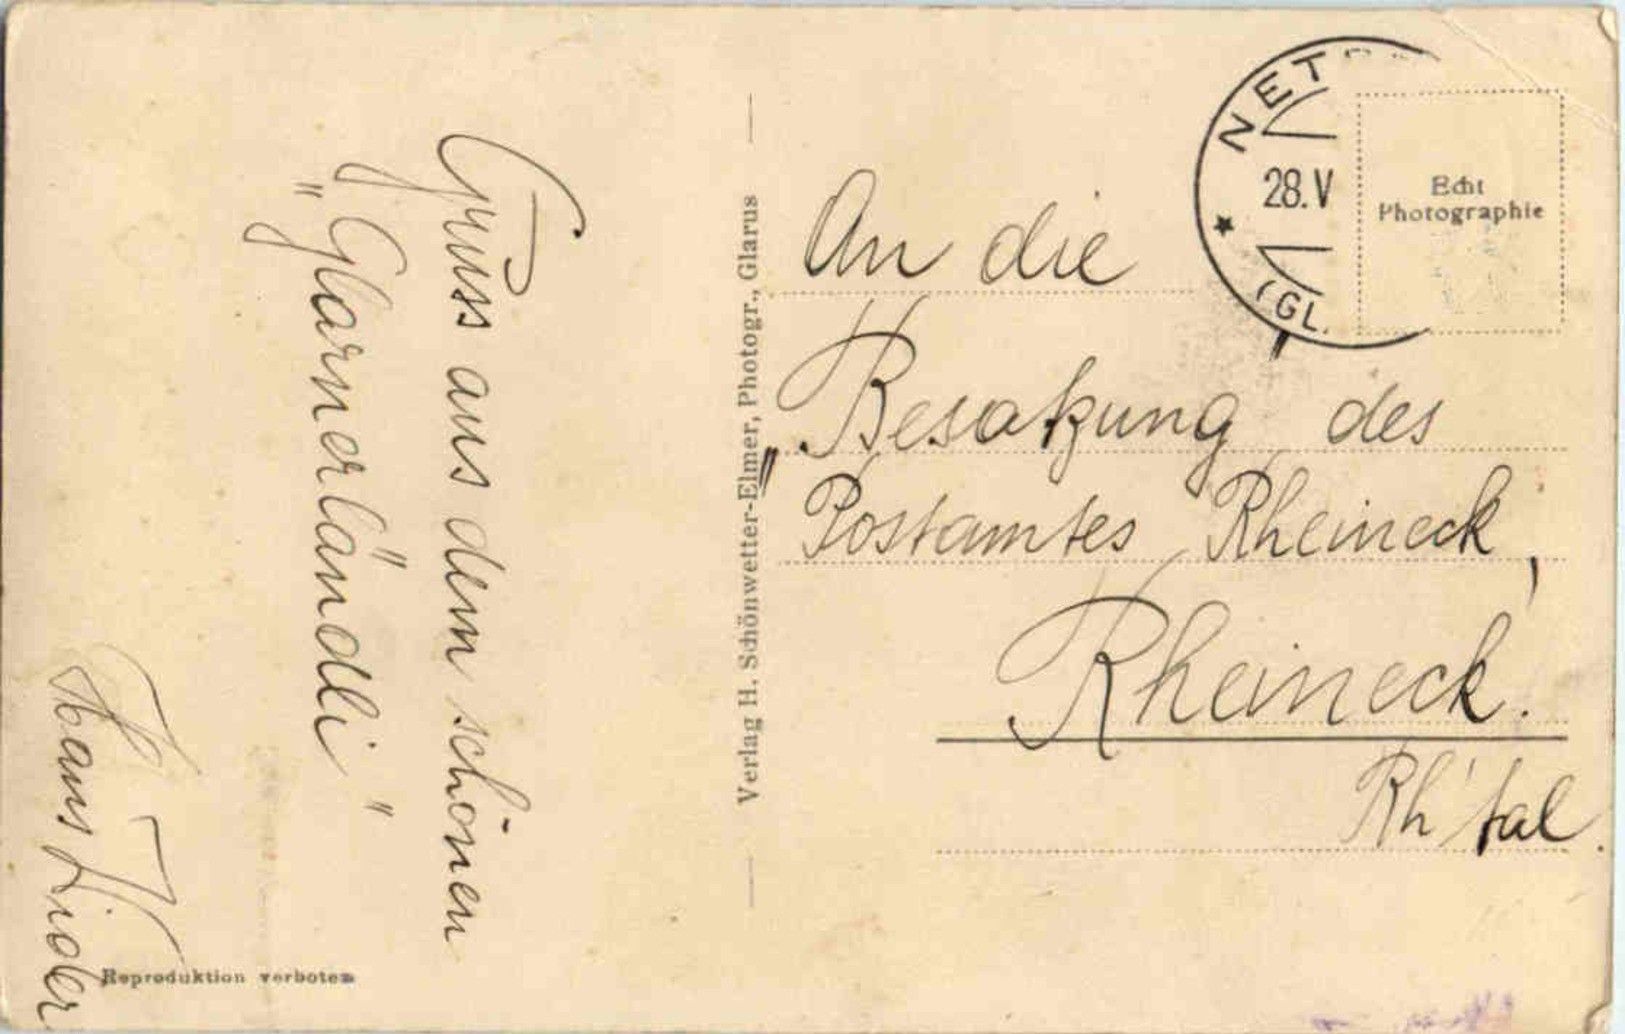 Gruss aus dem schönen
"Glarnerländli"
Hans
Verlag H. Schönwetter-Elmer, Photogr., Glarus
Reproduktion verboten
NET
28.V
(GL.
Echt
Photographie
An die
Besatzung des
Postamtes Rheineck,
Rheineck.
Rh'tal.